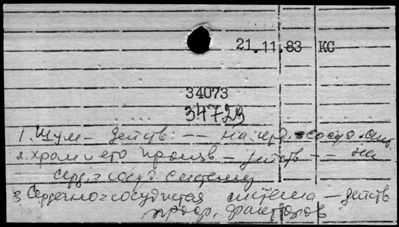 21.11.83 КС
34073
34729
1. Шум - действ: -- на серд.-сосуд. сист
2. Храп и его произв - действ -- на
серд.-сосуд систему
3. Сердечно-сосудистая система действ
проф. факторов